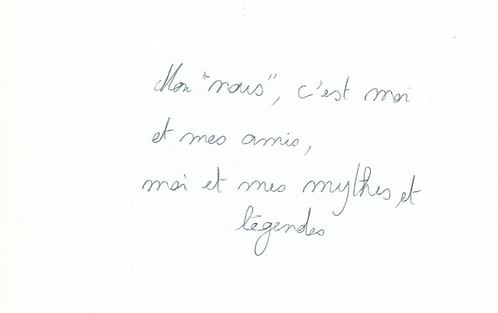 Mon "nous", c'est moi
et mes amis,
moi et mes mythes et
légendes